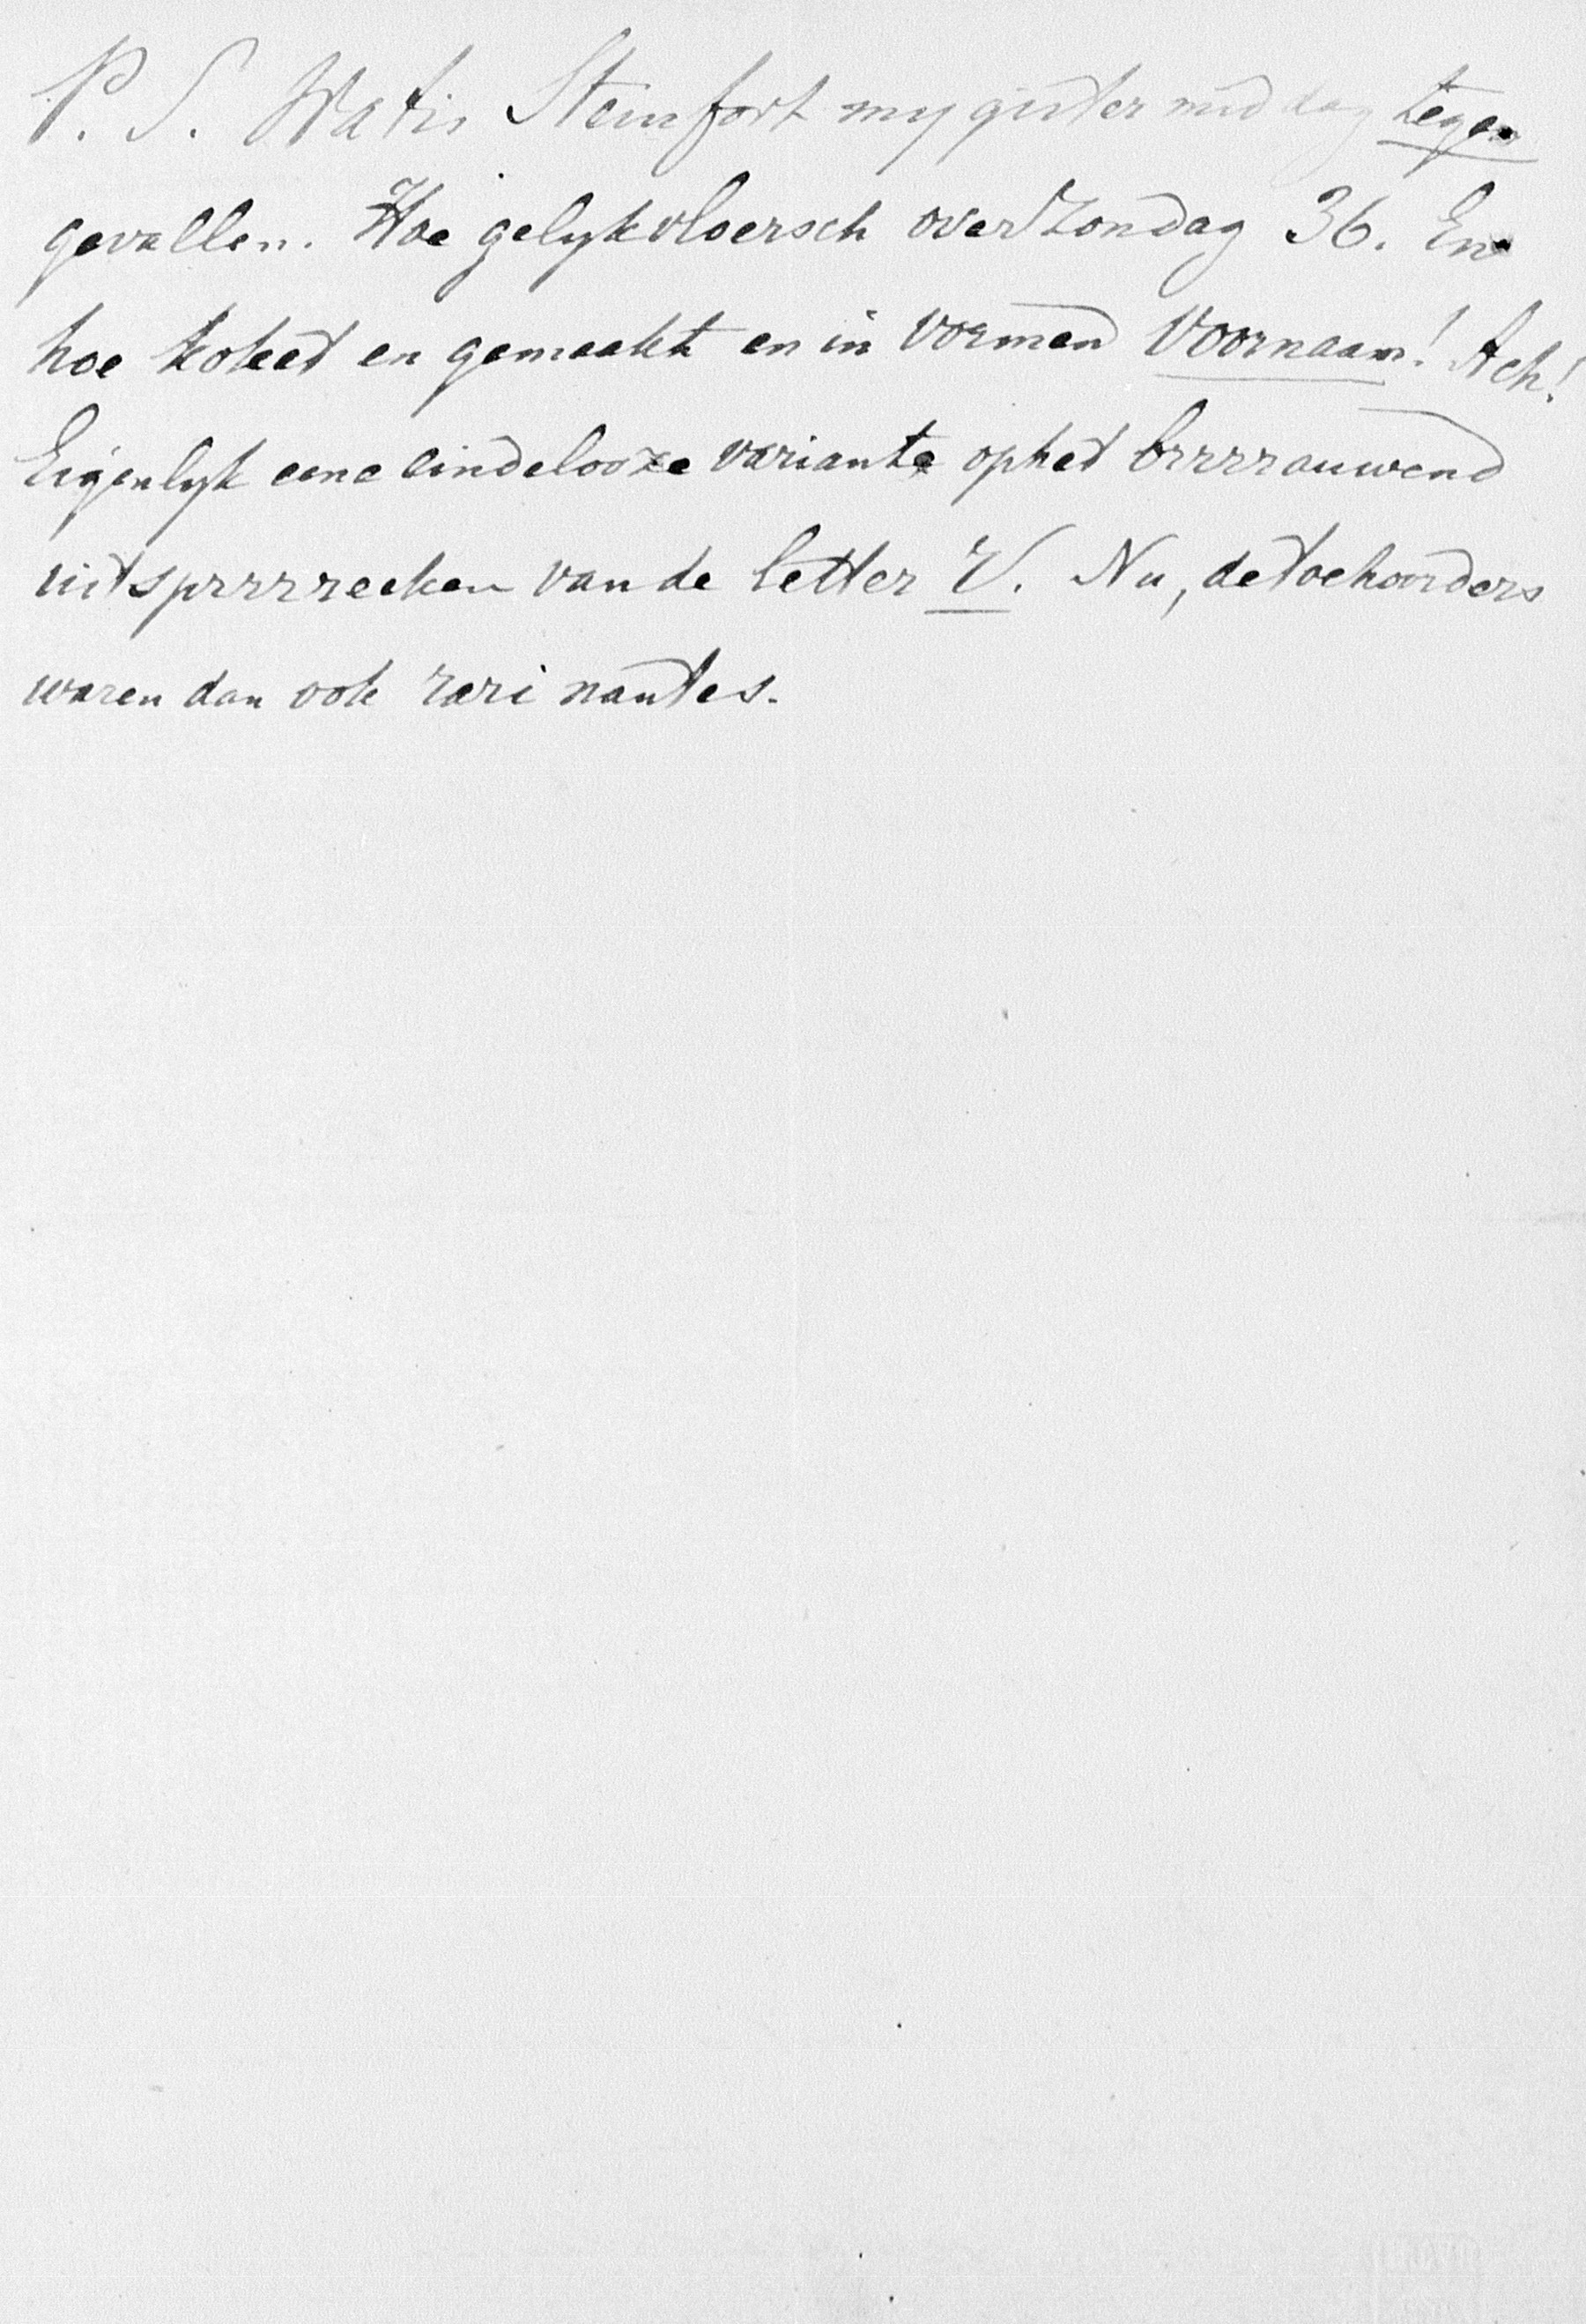 P. S. Wat is Steinfort my gister middag tegen
gevallen. Hoe gelykvloersch over Zondag 36. En
hoe koket en gemaakt en in vormen voornaam! Ach!
Eigenlyk eene eindelooze variante op het brrrrauwend
uitsprrrreeken van de letter r. Nu, de toehoorders
waren dan ook rari nantes.